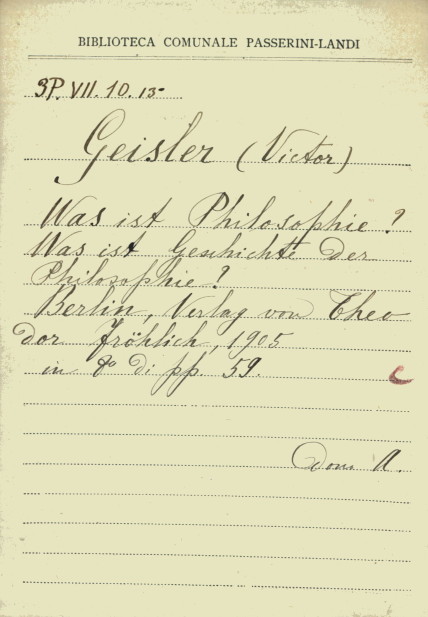 BIBLIOTECA COMUNALE PASSERINI-LANDI
3P. VII. 10. 15-
Geisler (Victor)
Was ist Philosophie?
Was ist Geschichte der
Philosophie?
Berlin, Verlag von Theo
dor Fröhlich, 1905
in 8° di pp. 59.
C
Dom A.